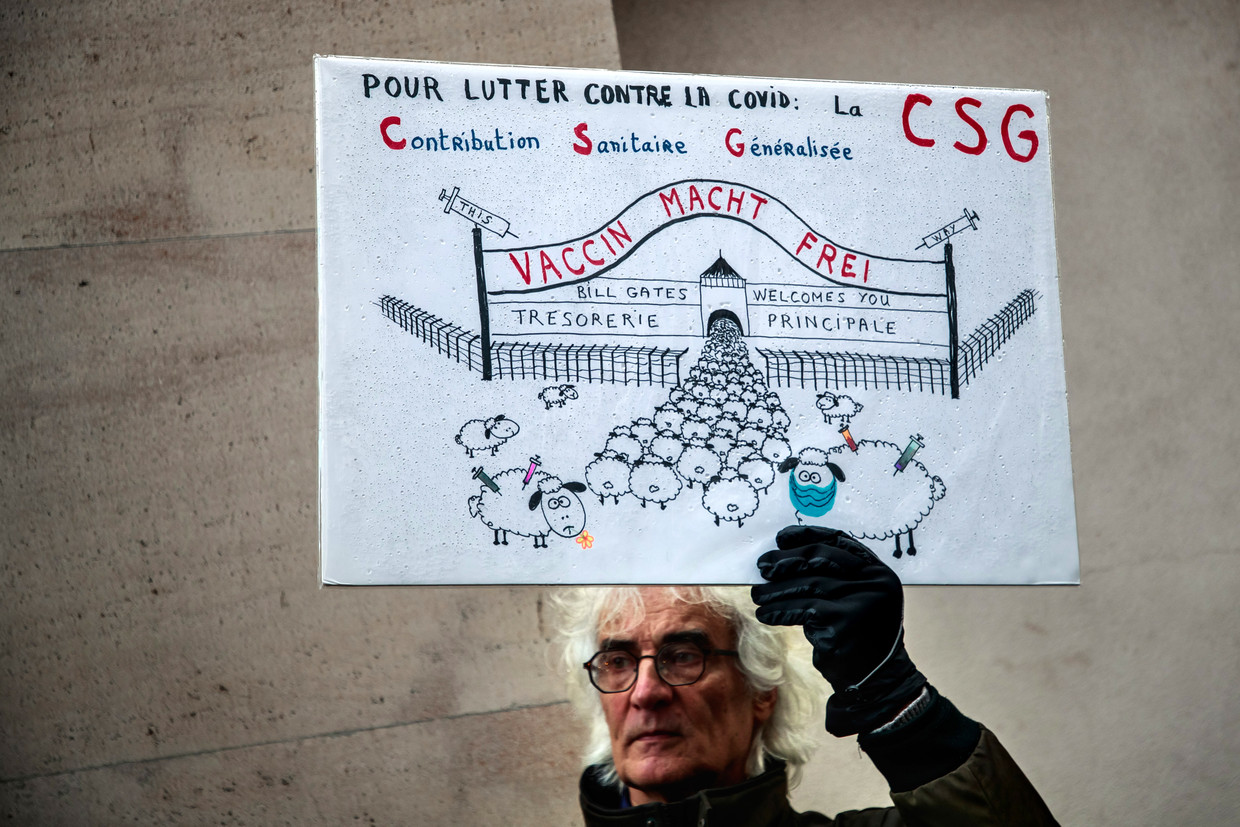 POUR LUTTER CONTRE LA COVID: La CSG
Contribution Sanitaire Généralisée
THIS WAY
VACCIN MACHT FREI
BILL GATES WELCOMES YOU
TRESORERIE PRINCIPALE